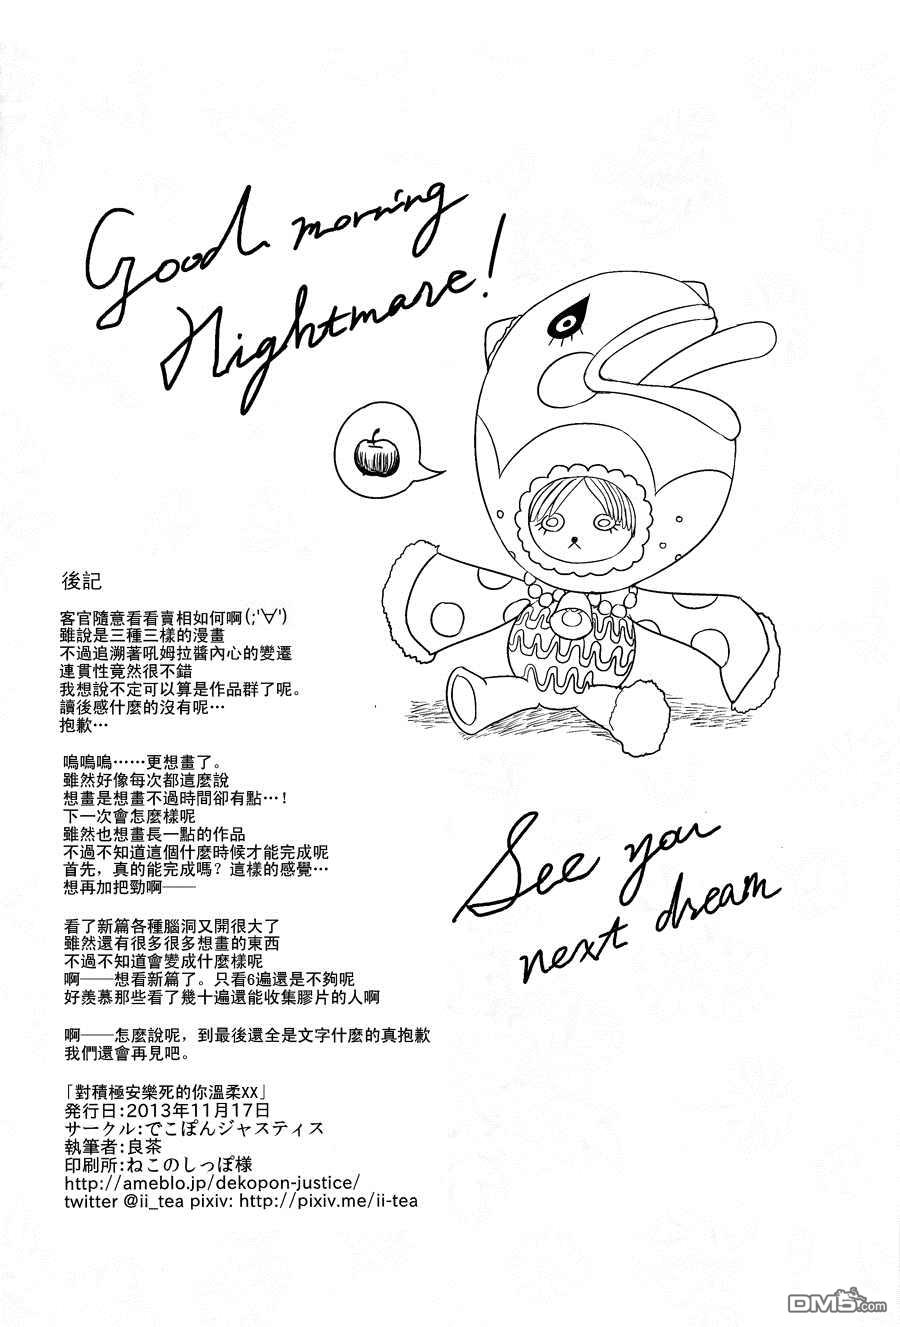 Good morning
Nightmare!
後記
客官隨意看看賣相如何啊(;'∀')
雖說是三種三樣的漫畫
不過追溯著吼姆拉醬內心的變遷
連貫性竟然很不錯
我想說不定可以算是作品群了呢。
讀後感什麼的沒有呢…
抱歉…
嗚嗚嗚……更想畫了。
雖然好像每次都這麼說
想畫是想畫不過時間卻有點…!
下一次會怎麼樣呢
雖然也想畫長一點的作品
不過不知道這個什麼時候才能完成呢
首先，真的能完成嗎？這樣的感覺…
想再加把勁啊——
看了新篇各種腦洞又開很大了
雖然還有很多很多想畫的東西
不過不知道會變成什麼樣呢
啊——想看新篇了。只看6遍還是不夠呢
好羨慕那些看了幾十遍還能收集膠片的人啊
啊——怎麼說呢，到最後還全是文字什麼的真抱歉
我們還會再見吧。
「對積極安樂死的你溫柔XX」
発行日:2013年11月17日
サークル:でこぽんジャスティス
執筆者:良茶
印刷所:ねこのしっぽ様
http://ameblo.jp/dekopon-justice/
twitter @ii_tea pixiv: http://pixiv.me/ii-tea
See you
next dream
DM5.com